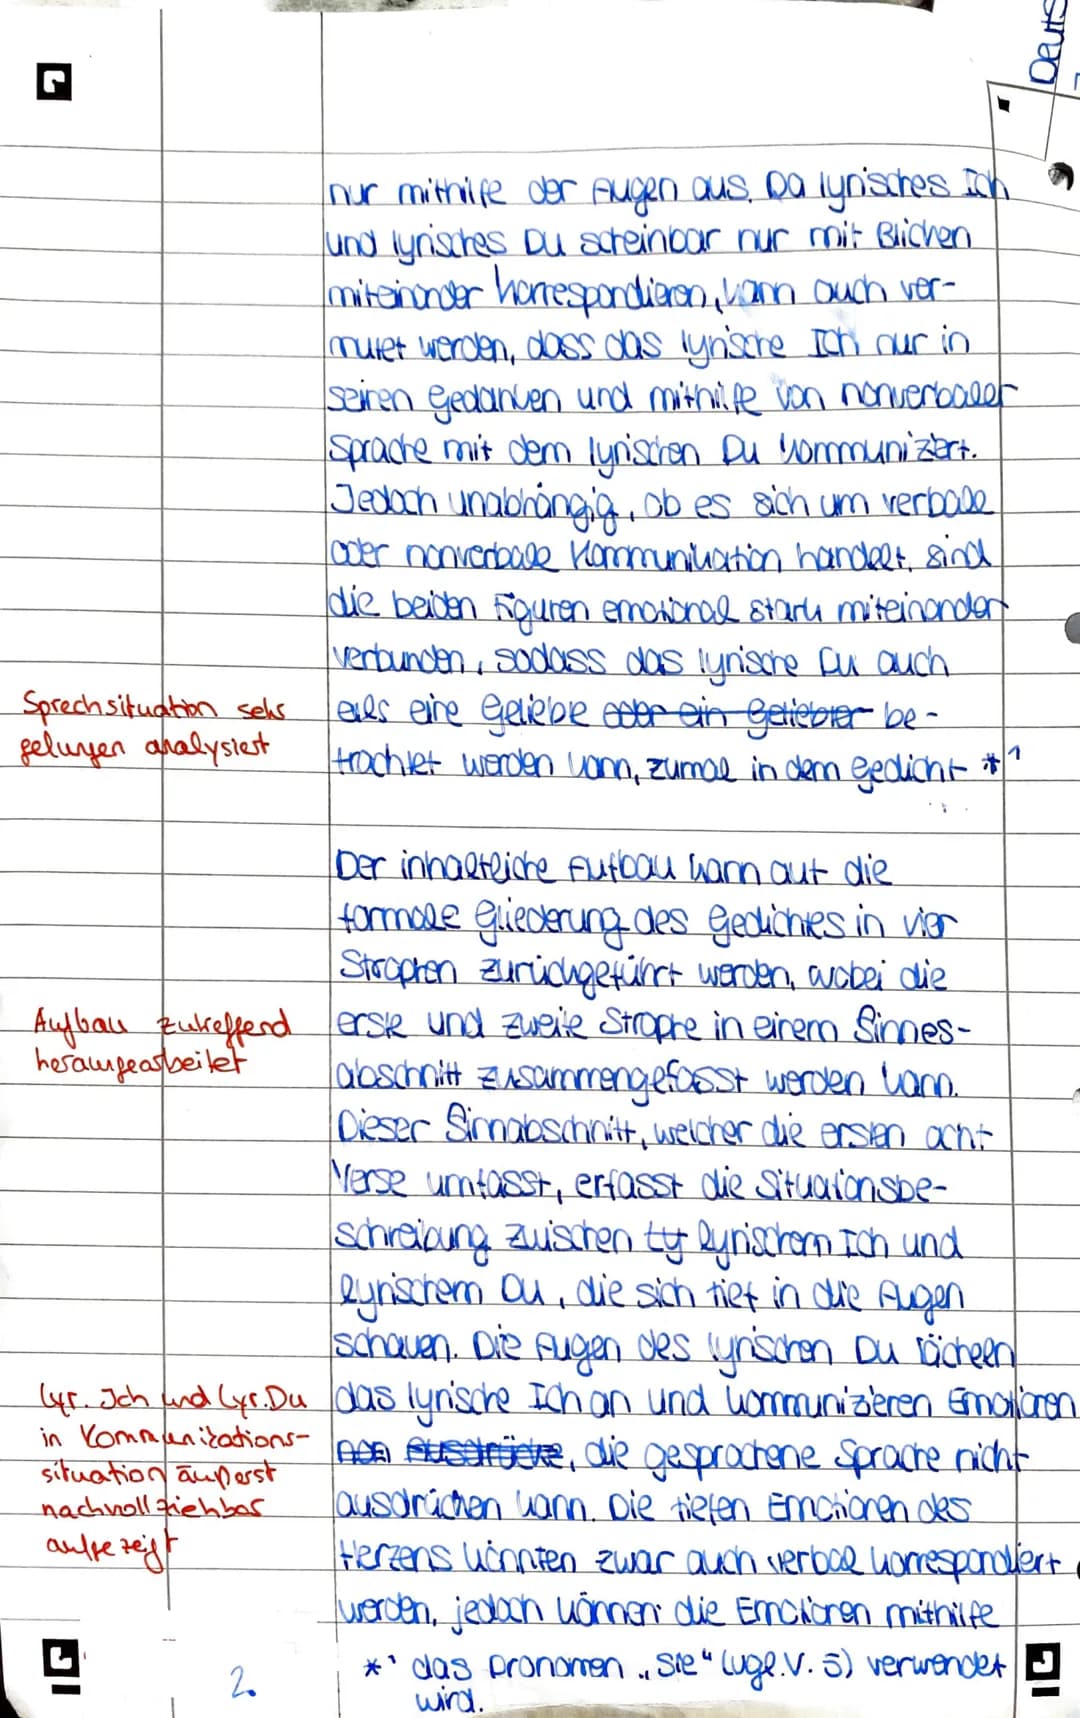 Deuts
nur mithilfe der Augen aus. Da lyrisches Ich
und lyrisches Du scheinbar nur mit Blicken
miteinander korrespondieren, kann auch ver-
mutet werden, dass das lyrische Ich nur in
seinen Gedanken und mithilfe von nonverbaler
Sprache mit dem lyrischen Du kommuniziert.
Jedoch unabhängig, ob es sich um verbale
oder nonverbale Kommunikation handelt, sind
die beiden Figuren emotional stark miteinander
verbunden, sodass das lyrische Du auch
Sprechsituation sehr
gelungen analysiert
als eine Geliebe oder ein Geliebter be-
trachtet werden kann, zumal in dem Gedicht *1
Der inhaltliche Aufbau kann auf die
formale Gliederung des Gedichtes in vier
Strophen zurückgeführt werden, wobei die
Aufbau zutreffend
herausgearbeitet
erste und zweite Strophe in einem Sinnes-
abschnitt zusammengefasst werden kann.
Dieser Sinnabschnitt, welcher die ersten acht
Verse umfasst, erfasst die Situationsbe-
schreibung zwischen ty lyrischem Ich und
lyrischem Du, die sich tief in die Augen
schauen. Die Augen des lyrischen Du lächeln
lyr. Ich und lyr. Du
in Kommunikations-
situation äußerst
nachvollziehbar
aufgezeigt
das lyrische Ich an und kommunizieren Emotionen
Ausdrücke, die gesprochene Sprache nicht
ausdrücken kann. Die tiefen Emotionen des
Herzens könnten zwar auch verbal korrespondiert
werden, jedoch können die Emotionen mithilfe
*1 das Pronomen „sie“ (vgl. V. 5) verwendet
wird.
2.